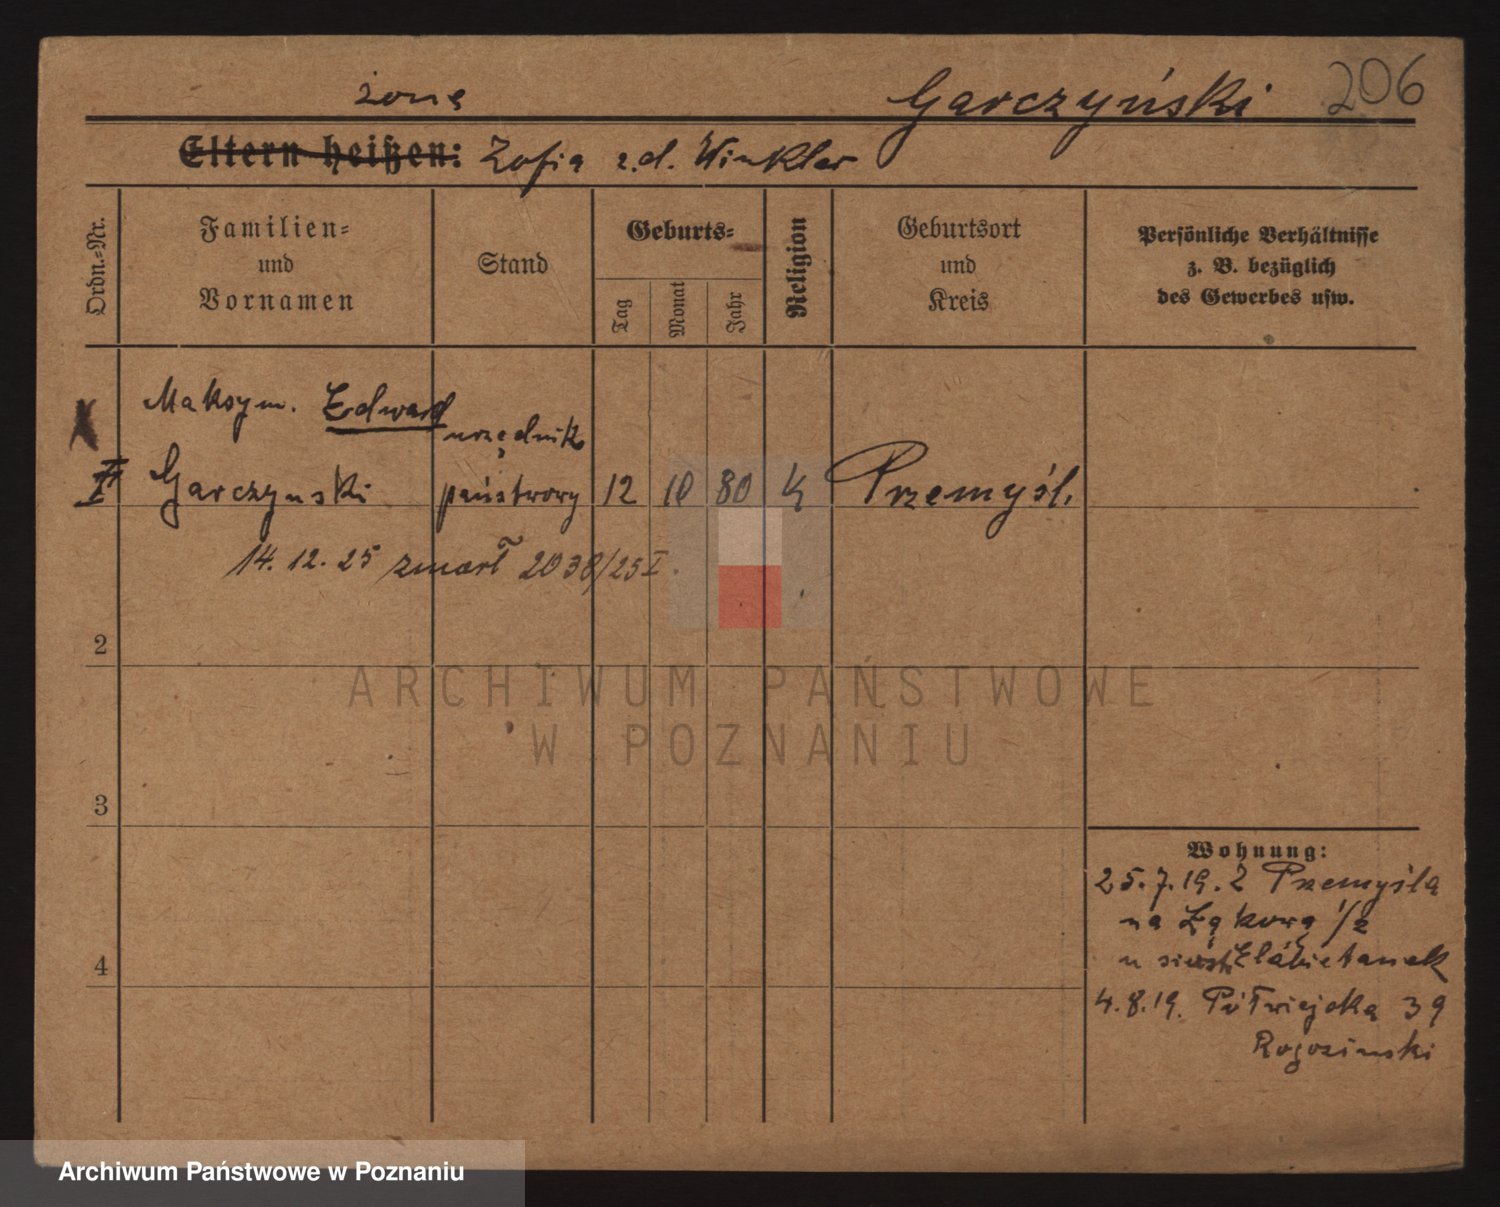 206
żona Garczyński
Eltern heißen: Zofia z.d. Winkler
Ordn.-Nr.
Familien- und Vornamen
Stand
Geburts-
Tag
Monat
Jahr
Religion
Geburtsort und Kreis
Persönliche Verhältnisse
z. B. bezüglich
des Gewerbes usw.
Maksym. Edward
urzędnik
Garczynski państwowy 12 10 80 k Przemyśl.
14. 12. 25 zmarł 2038/25 I.
2
3
4
ARCHIWUM PAŃSTWOWE
W POZNANIU
Wohnung:
25.7.19. z Przemyśla
na Łąkową 1/2
u
4.8.19. Półwiejska 39
Rogozinski
Archiwum Państwowe w Poznaniu